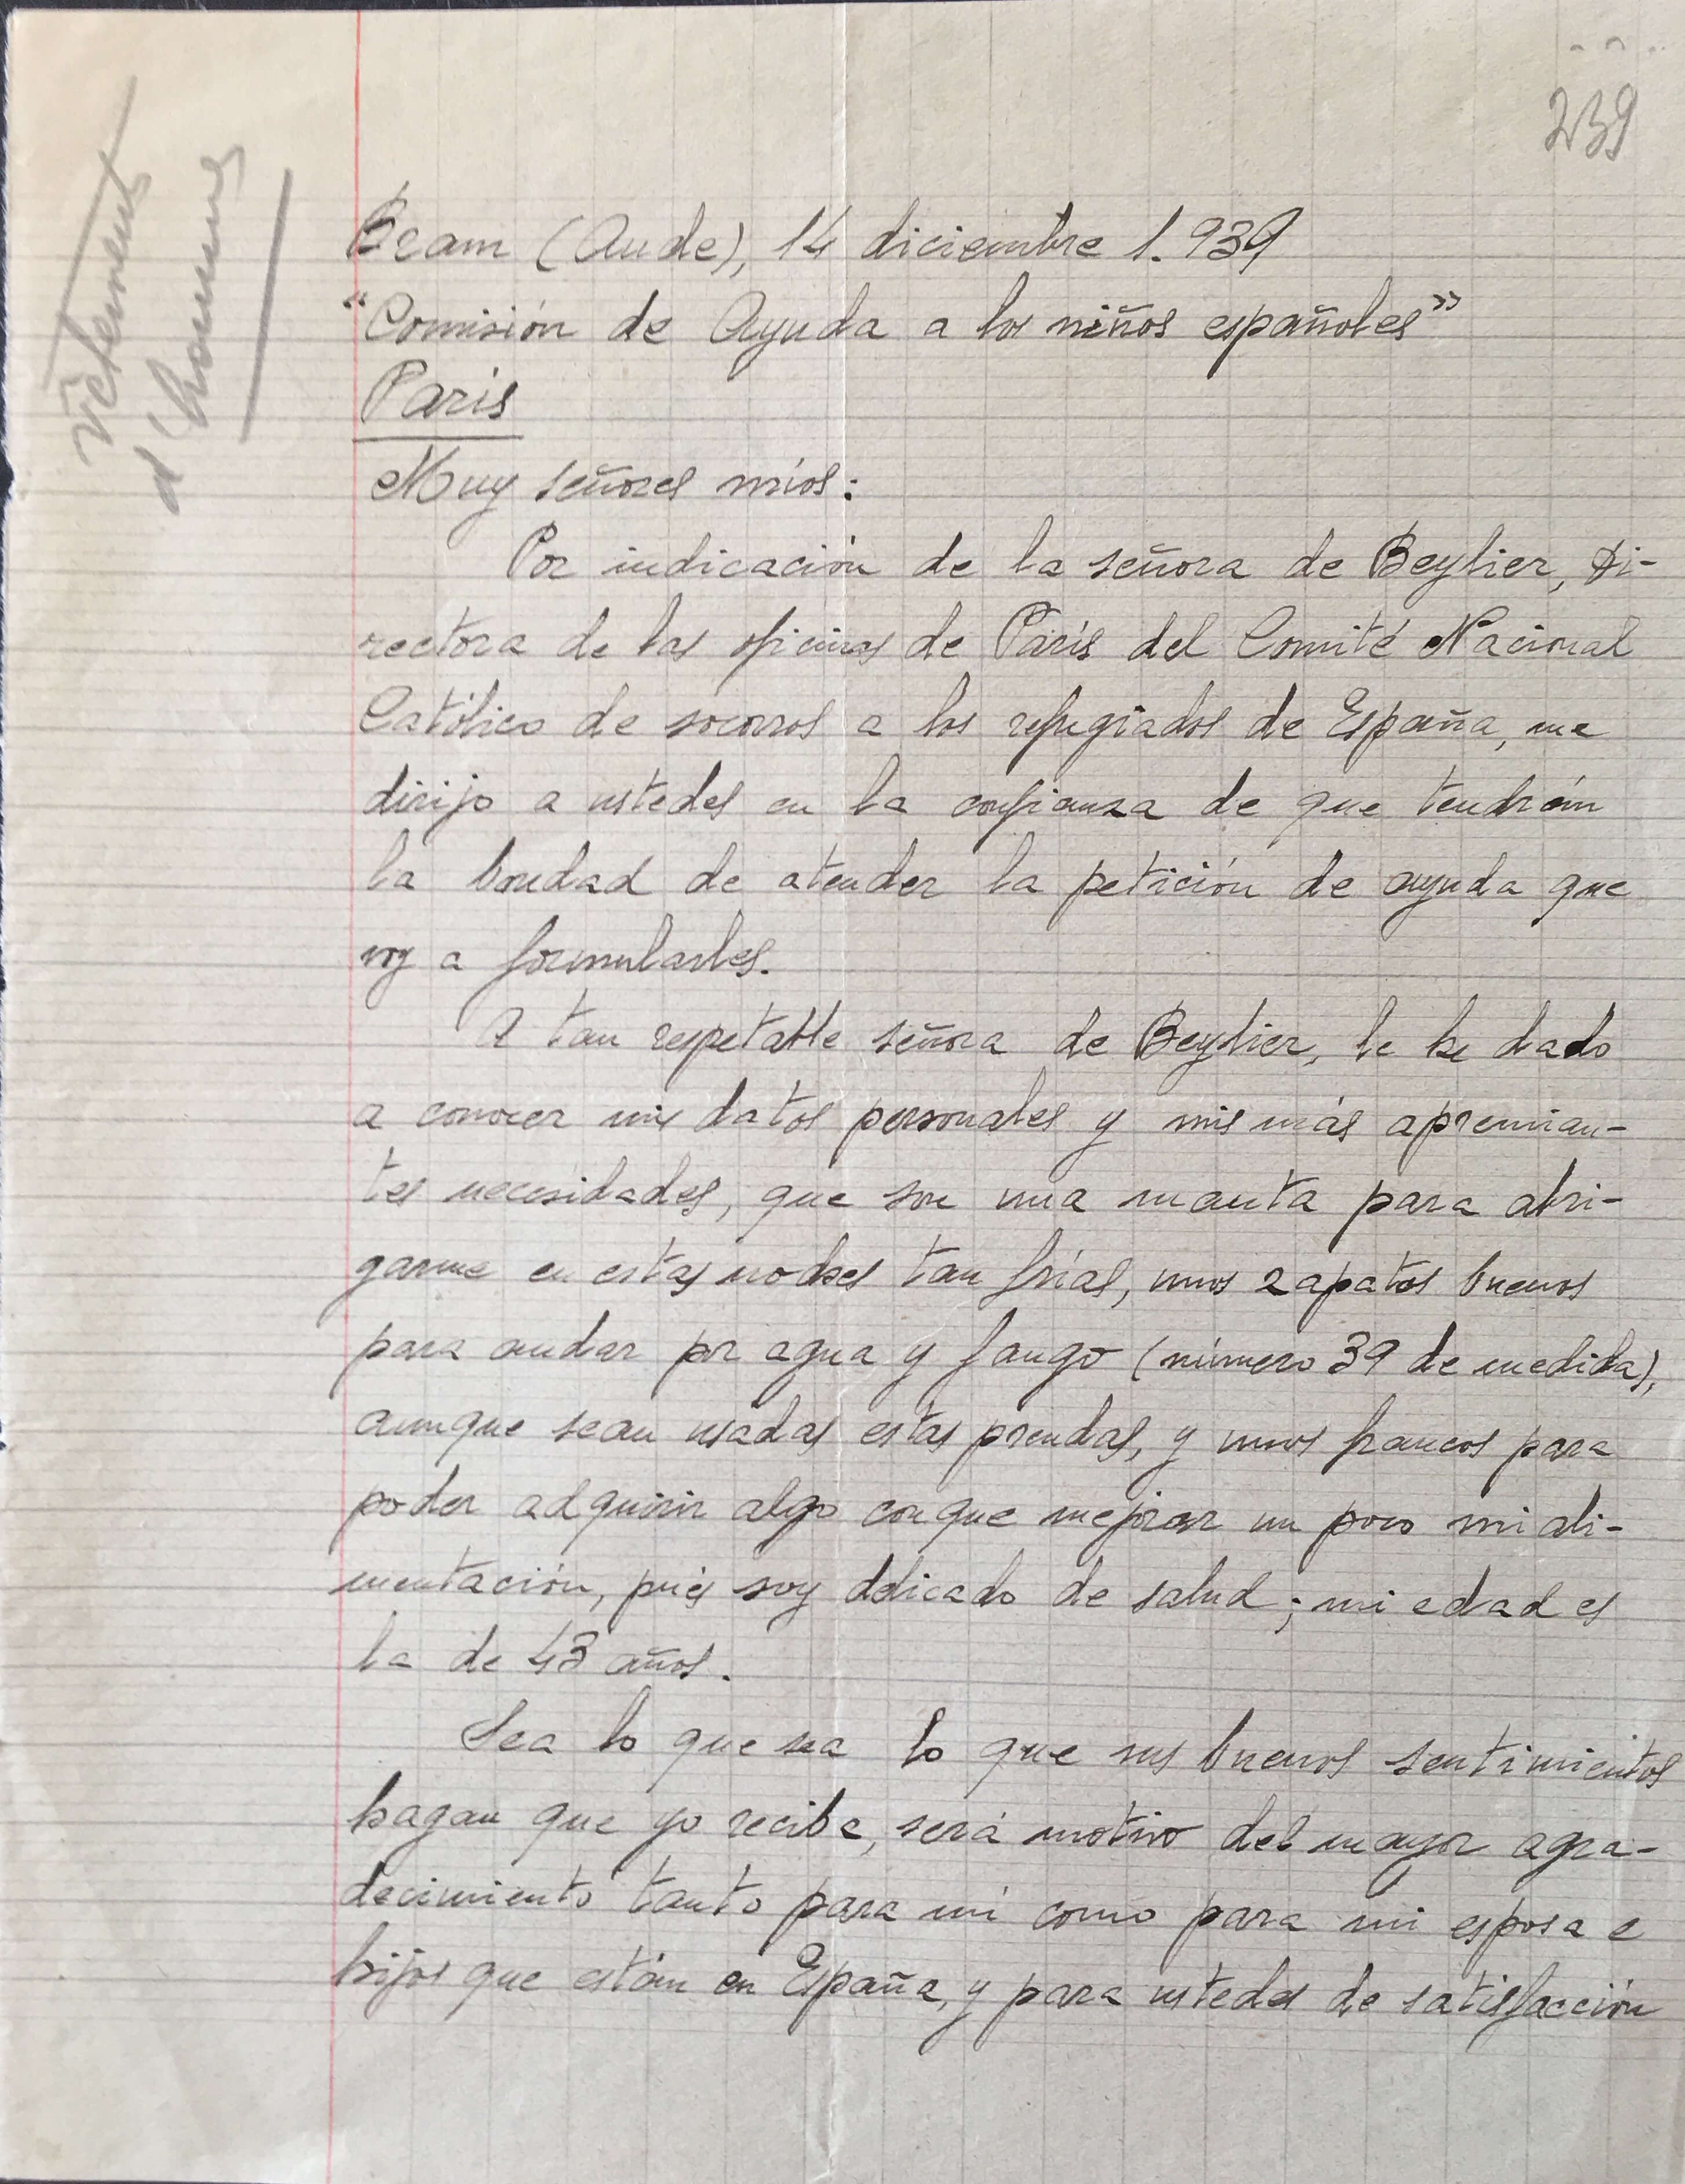 239
Vêtements
d'hommes
Bram (Aude), 14 diciembre 1.939
"Comisión de Ayuda a los niños españoles"
Paris
Muy señores míos:
Por indicación de la señora de Beylier, Di-
rectora de las oficinas de París del Comité Nacional
Católico de socorros a los refugiados de España, me
dirijo a ustedes en la confianza de que tendrán
la bondad de atender la petición de ayuda que
voy a formularles.
A tan respetable señora de Beylier, le he dado
a conocer mis datos personales y mis más apremian-
tes necesidades, que son una manta para abri-
garme en estas noches tan frías, unos zapatos buenos
para andar por agua y fango (número 39 de medida),
aunque sean usadas estas prendas, y unos francos para
poder adquirir algo con que mejorar un poco mi ali-
mentación, pués soy delicado de salud; mi edad es
la de 43 años.
Sea lo que sea lo que sus buenos sentimientos
hagan que yo reciba, será motivo del mayor agra-
decimiento tanto para mí como para mi esposa e
hijos que están en España, y para ustedes de satisfacción